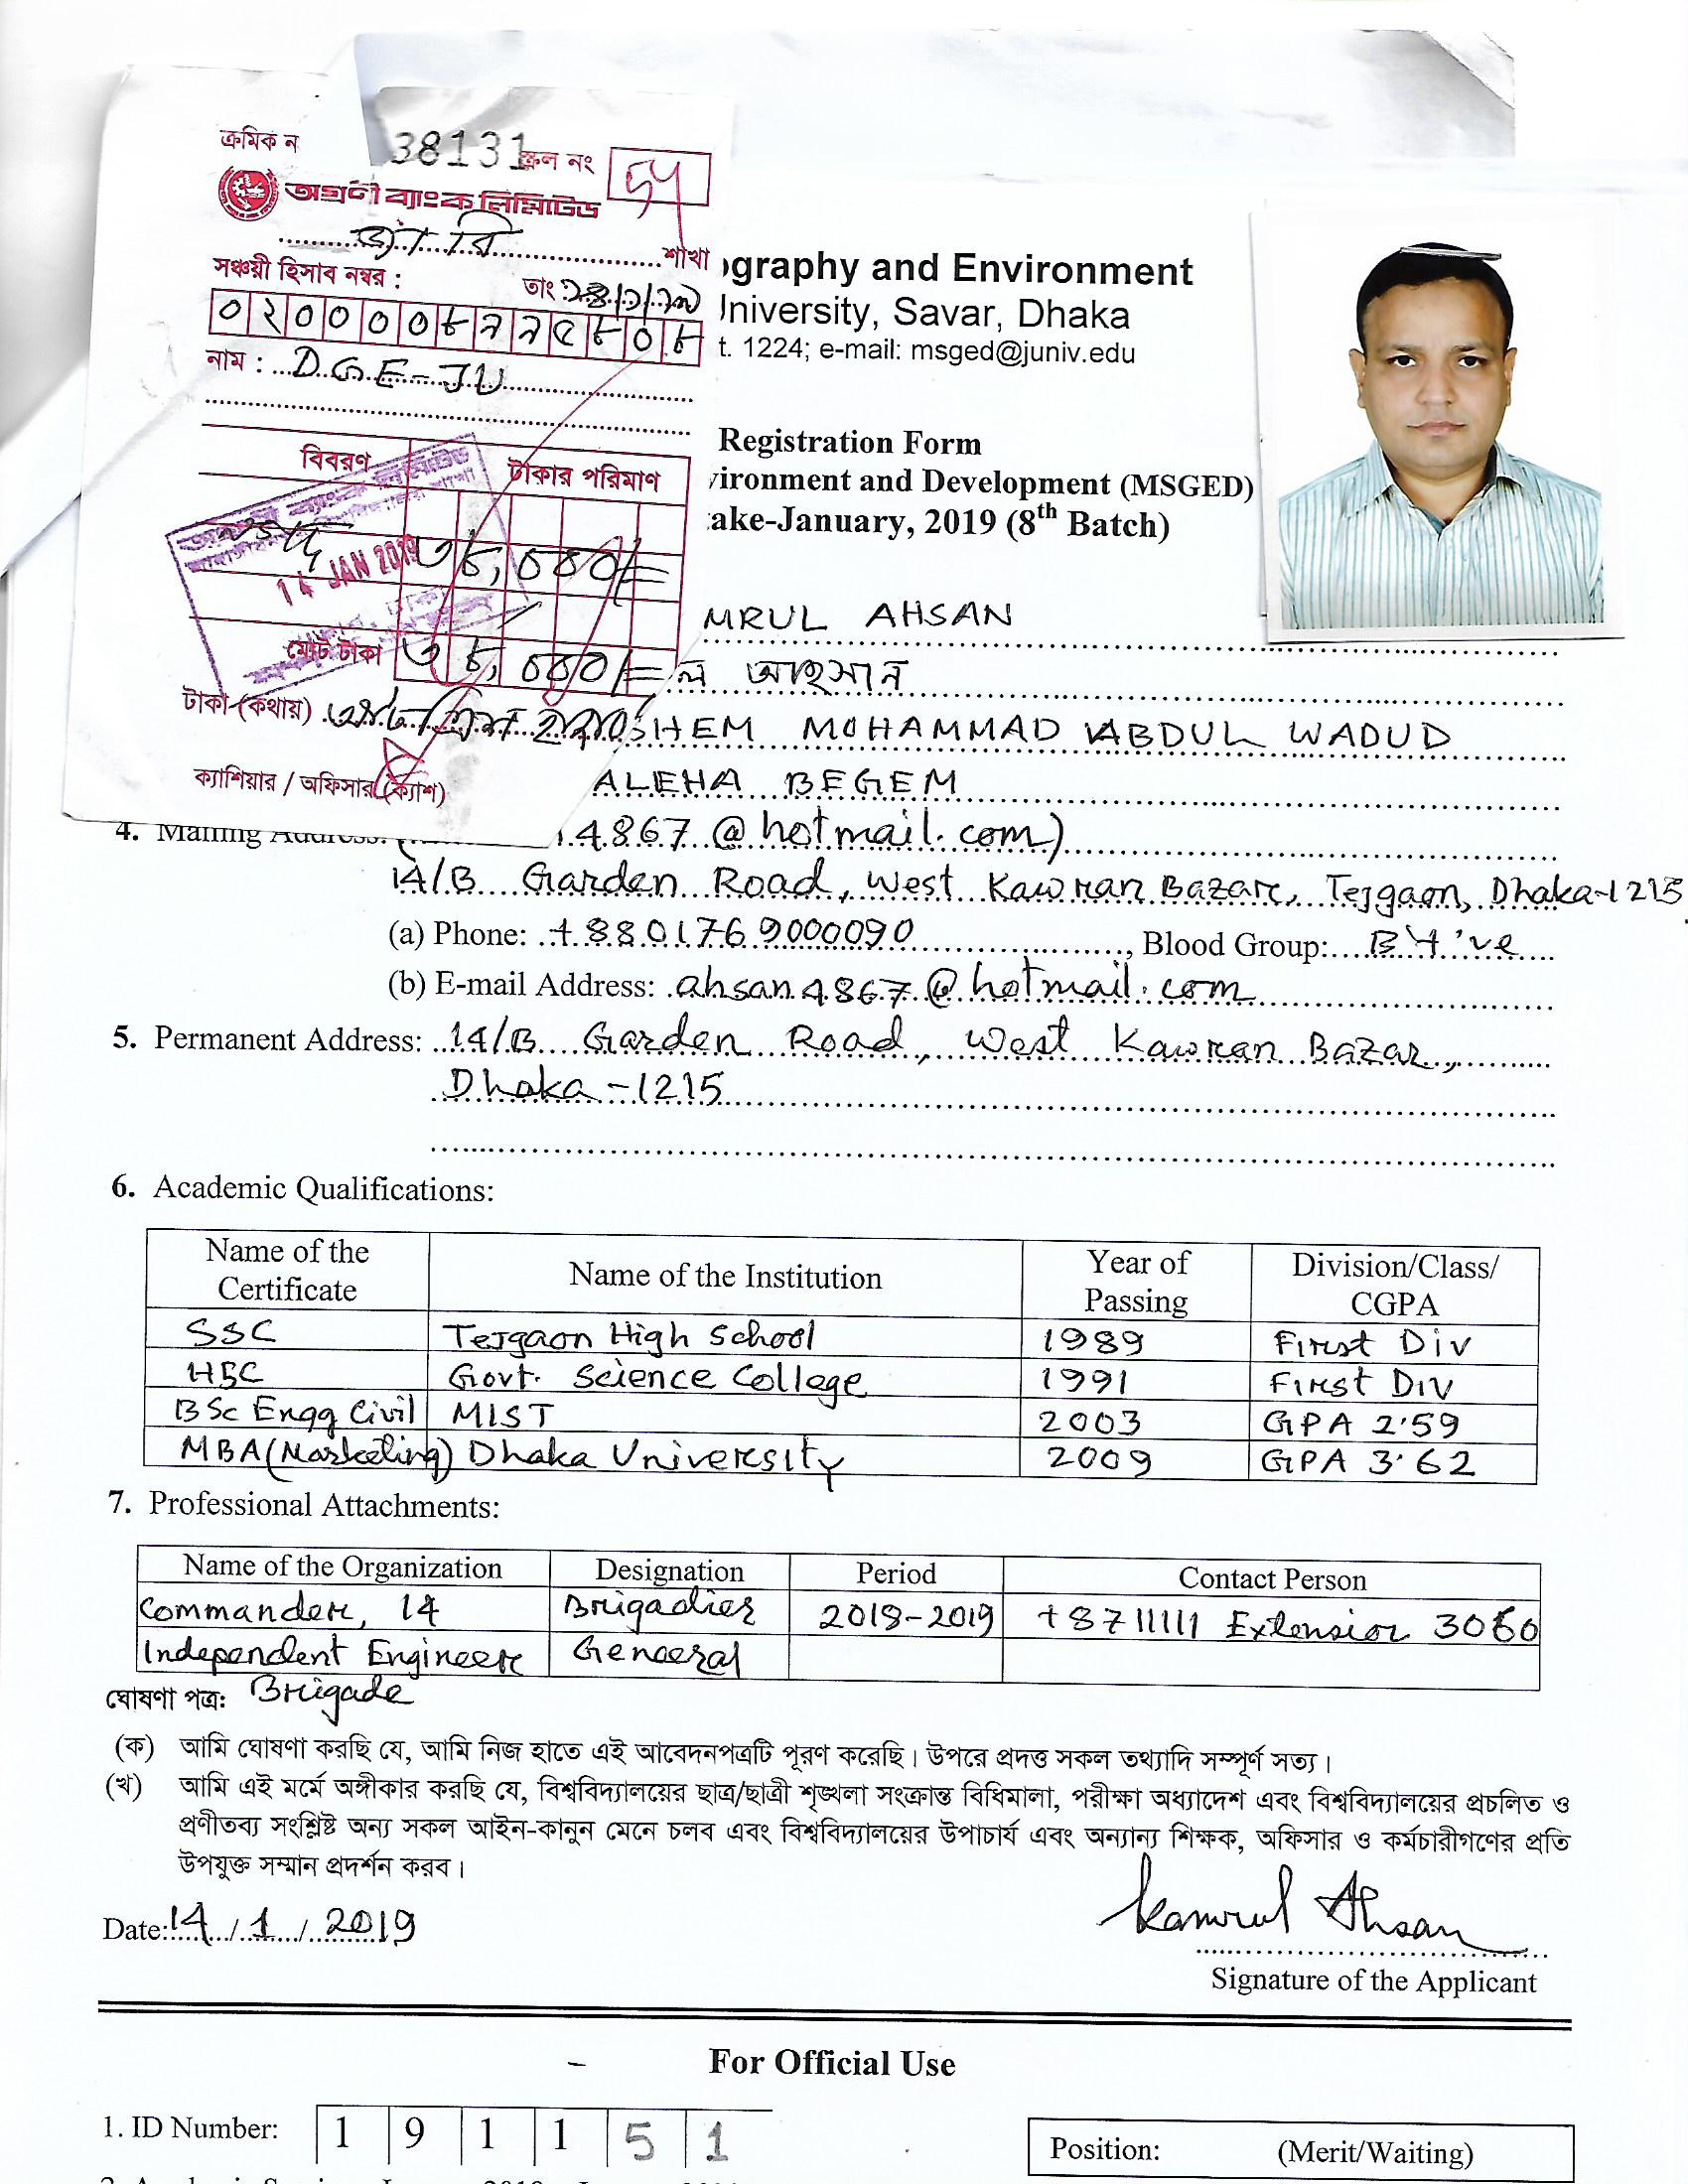 ক্রমিক ন
38131
স্ক্রল নং 54
অগ্রণী ব্যাংক লিমিটেড
জা বি শাখা
সঞ্চয়ী হিসাব নম্বর :
তাং
০২০০০০৮৭৭৫৮০৮
নাম : D.G.E-JU
বিবরণ টাকার পরিমাণ
14 JAN 2019
৩৮,০০০/=
মোট টাকা ৩৮,০০০/=
টাকা (কথায়)
ক্যাশিয়ার / অফিসার (ক্যাশ)
ography and Environment
University, Savar, Dhaka
t. 1224; e-mail: msged@juniv.edu
Registration Form
vironment and Development (MSGED)
ake-January, 2019 (8th Batch)
MRUL AHSAN
ল আহসান
SHEM MOHAMMAD ABDUL WADUD
ALEHA BEGEM
4. Mailing Address: 4867@hotmail.com)
14/B Garden Road, West Kawran Bazar, Tejgaon, Dhaka-1215
(a) Phone: +8801769000090, Blood Group: B+'ve
(b) E-mail Address: ahsan4867@hotmail.com
5. Permanent Address: 14/B Garden Road, West Kawran Bazar,
Dhaka-1215
6. Academic Qualifications:
Name of the Certificate Name of the Institution Year of Passing Division/Class/CGPA
SSC Tejgaon High School 1989 First Div
HSC Govt. Science College 1991 First Div
BSc Engg Civil MIST 2003 GPA 2.59
MBA (Marketing) Dhaka University 2009 GPA 3.62
7. Professional Attachments:
Name of the Organization Designation Period Contact Person
Commander, 14 Brigadier 2018-2019 +8711111 Extension 3060
Independent Engineer General
ঘোষণা পত্র: Brigade
(ক) আমি ঘোষণা করছি যে, আমি নিজ হাতে এই আবেদনপত্রটি পূরণ করেছি। উপরে প্রদত্ত সকল তথ্যাদি সম্পূর্ণ সত্য।
(খ) আমি এই মর্মে অঙ্গীকার করছি যে, বিশ্ববিদ্যালয়ের ছাত্র/ছাত্রী শৃঙ্খলা সংক্রান্ত বিধিমালা, পরীক্ষা অধ্যাদেশ এবং বিশ্ববিদ্যালয়ের প্রচলিত ও
প্রণীতব্য সংশ্লিষ্ট অন্য সকল আইন-কানুন মেনে চলব এবং বিশ্ববিদ্যালয়ের উপাচার্য এবং অন্যান্য শিক্ষক, অফিসার ও কর্মচারীগণের প্রতি
উপযুক্ত সম্মান প্রদর্শন করব।
Kamrul Ahsan
Date: 14/1/2019
Signature of the Applicant
For Official Use
1. ID Number: 1 9 1 1 5 1
Position: (Merit/Waiting)